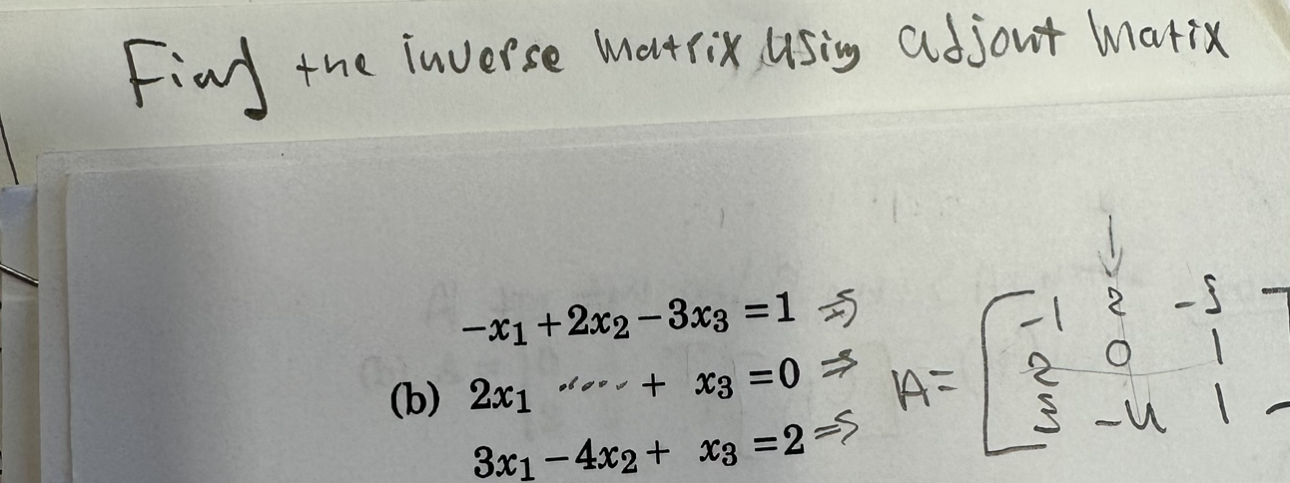 Find the inverse matrix using adjont matix
-x₁ + 2x₂ - 3x₃ = 1 ⇒
(b) 2x₁ ..... + x₃ = 0 ⇒
3x₁ - 4x₂ + x₃ = 2 ⇒
↓
A = [ -1 2 -3
2 0 1
3 -4 1 ]